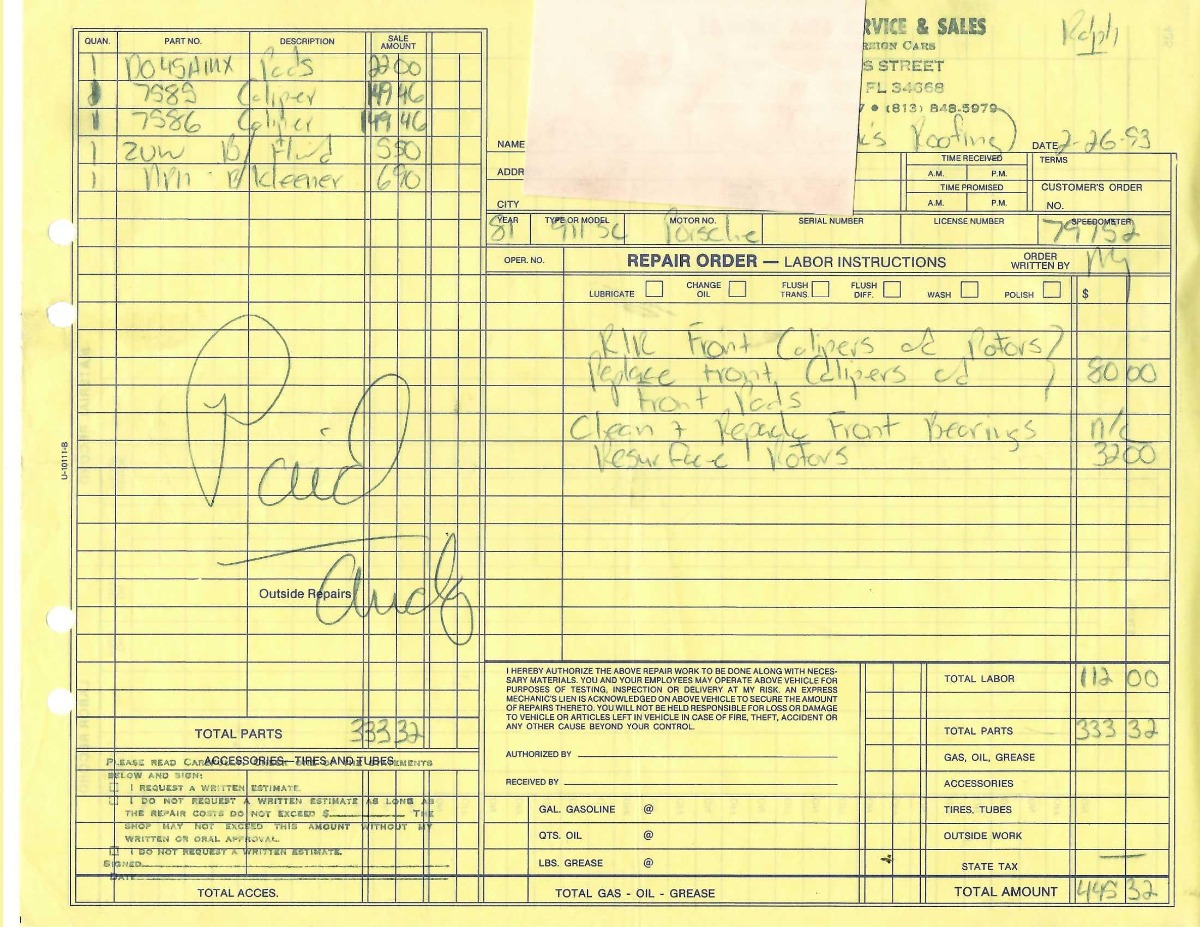 RVICE & SALES
Ralph
REIGN CARS
S STREET
FL 34668
7 • (813) 848-5979
QUAN. PART NO. DESCRIPTION SALE AMOUNT
1 DO45AMX Pads 22 00
1 7585 Caliper 149 46
1 7586 Caliper 149 46
1 B/ Fluid 5 50
1 B/Kleener 6 90
NAME k's Roofing) DATE 2-26-93
ADDR TIME RECEIVED A.M. P.M. TERMS
TIME PROMISED A.M. P.M. CUSTOMER'S ORDER NO.
CITY
YEAR TYPE OR MODEL MOTOR NO. SERIAL NUMBER LICENSE NUMBER SPEEDOMETER
81 911 SC Porsche 79752
OPER. NO. REPAIR ORDER — LABOR INSTRUCTIONS ORDER WRITTEN BY
LUBRICATE CHANGE OIL FLUSH TRANS. FLUSH DIFF. WASH POLISH $
R/R Front Calipers and Rotors)
Replace front Calipers and 80 00
Front Pads
Clean + Repack Front Bearings n/c
Resurface Rotors 32 00
Paid
Andy
U-10111-B
Outside Repairs
TOTAL PARTS 333 32
ACCESSORIES—TIRES AND TUBES
BELOW AND SIGN:
I REQUEST A WRITTEN ESTIMATE.
I DO NOT REQUEST A WRITTEN ESTIMATE AS LONG AS
THE REPAIR COSTS DO NOT EXCEED $ THE
SHOP MAY NOT EXCEED THIS AMOUNT WITHOUT MY
WRITTEN OR ORAL APPROVAL.
I DO NOT REQUEST A WRITTEN ESTIMATE.
SIGNED
DATE
TOTAL ACCES.
I HEREBY AUTHORIZE THE ABOVE REPAIR WORK TO BE DONE ALONG WITH NECES-
SARY MATERIALS. YOU AND YOUR EMPLOYEES MAY OPERATE ABOVE VEHICLE FOR
PURPOSES OF TESTING, INSPECTION OR DELIVERY AT MY RISK. AN EXPRESS
MECHANIC'S LIEN IS ACKNOWLEDGED ON ABOVE VEHICLE TO SECURE THE AMOUNT
OF REPAIRS THERETO. YOU WILL NOT BE HELD RESPONSIBLE FOR LOSS OR DAMAGE
TO VEHICLE OR ARTICLES LEFT IN VEHICLE IN CASE OF FIRE, THEFT, ACCIDENT OR
ANY OTHER CAUSE BEYOND YOUR CONTROL.
AUTHORIZED BY
RECEIVED BY
GAL. GASOLINE @
QTS. OIL @
LBS. GREASE @
TOTAL GAS - OIL - GREASE
TOTAL LABOR 112 00
TOTAL PARTS 333 32
GAS, OIL, GREASE
ACCESSORIES
TIRES, TUBES
OUTSIDE WORK
STATE TAX —
TOTAL AMOUNT 445 32